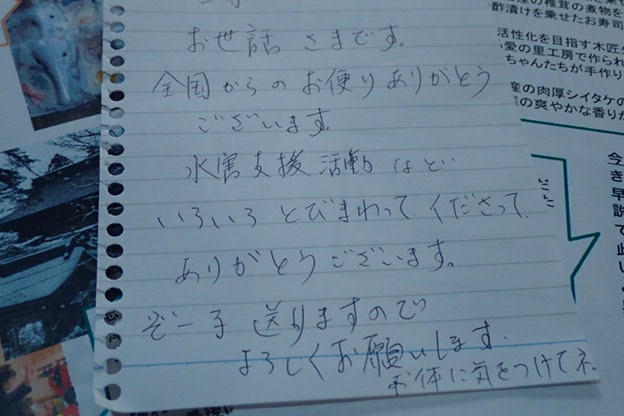 お世話さまです。
全国からのお便りありがとう
ございます。
水害支援活動など
いろいろとびまわってくださって、
ありがとうございます。
ぞー子送りますので
よろしくお願いします。
お体に気をつけてネ。
酢漬けを乗せたお寿司
活性化を目指す木匠
愛の里工房で作られ
ちゃんたちが手作り
産の肉厚シイタケの
の爽やかな香りが